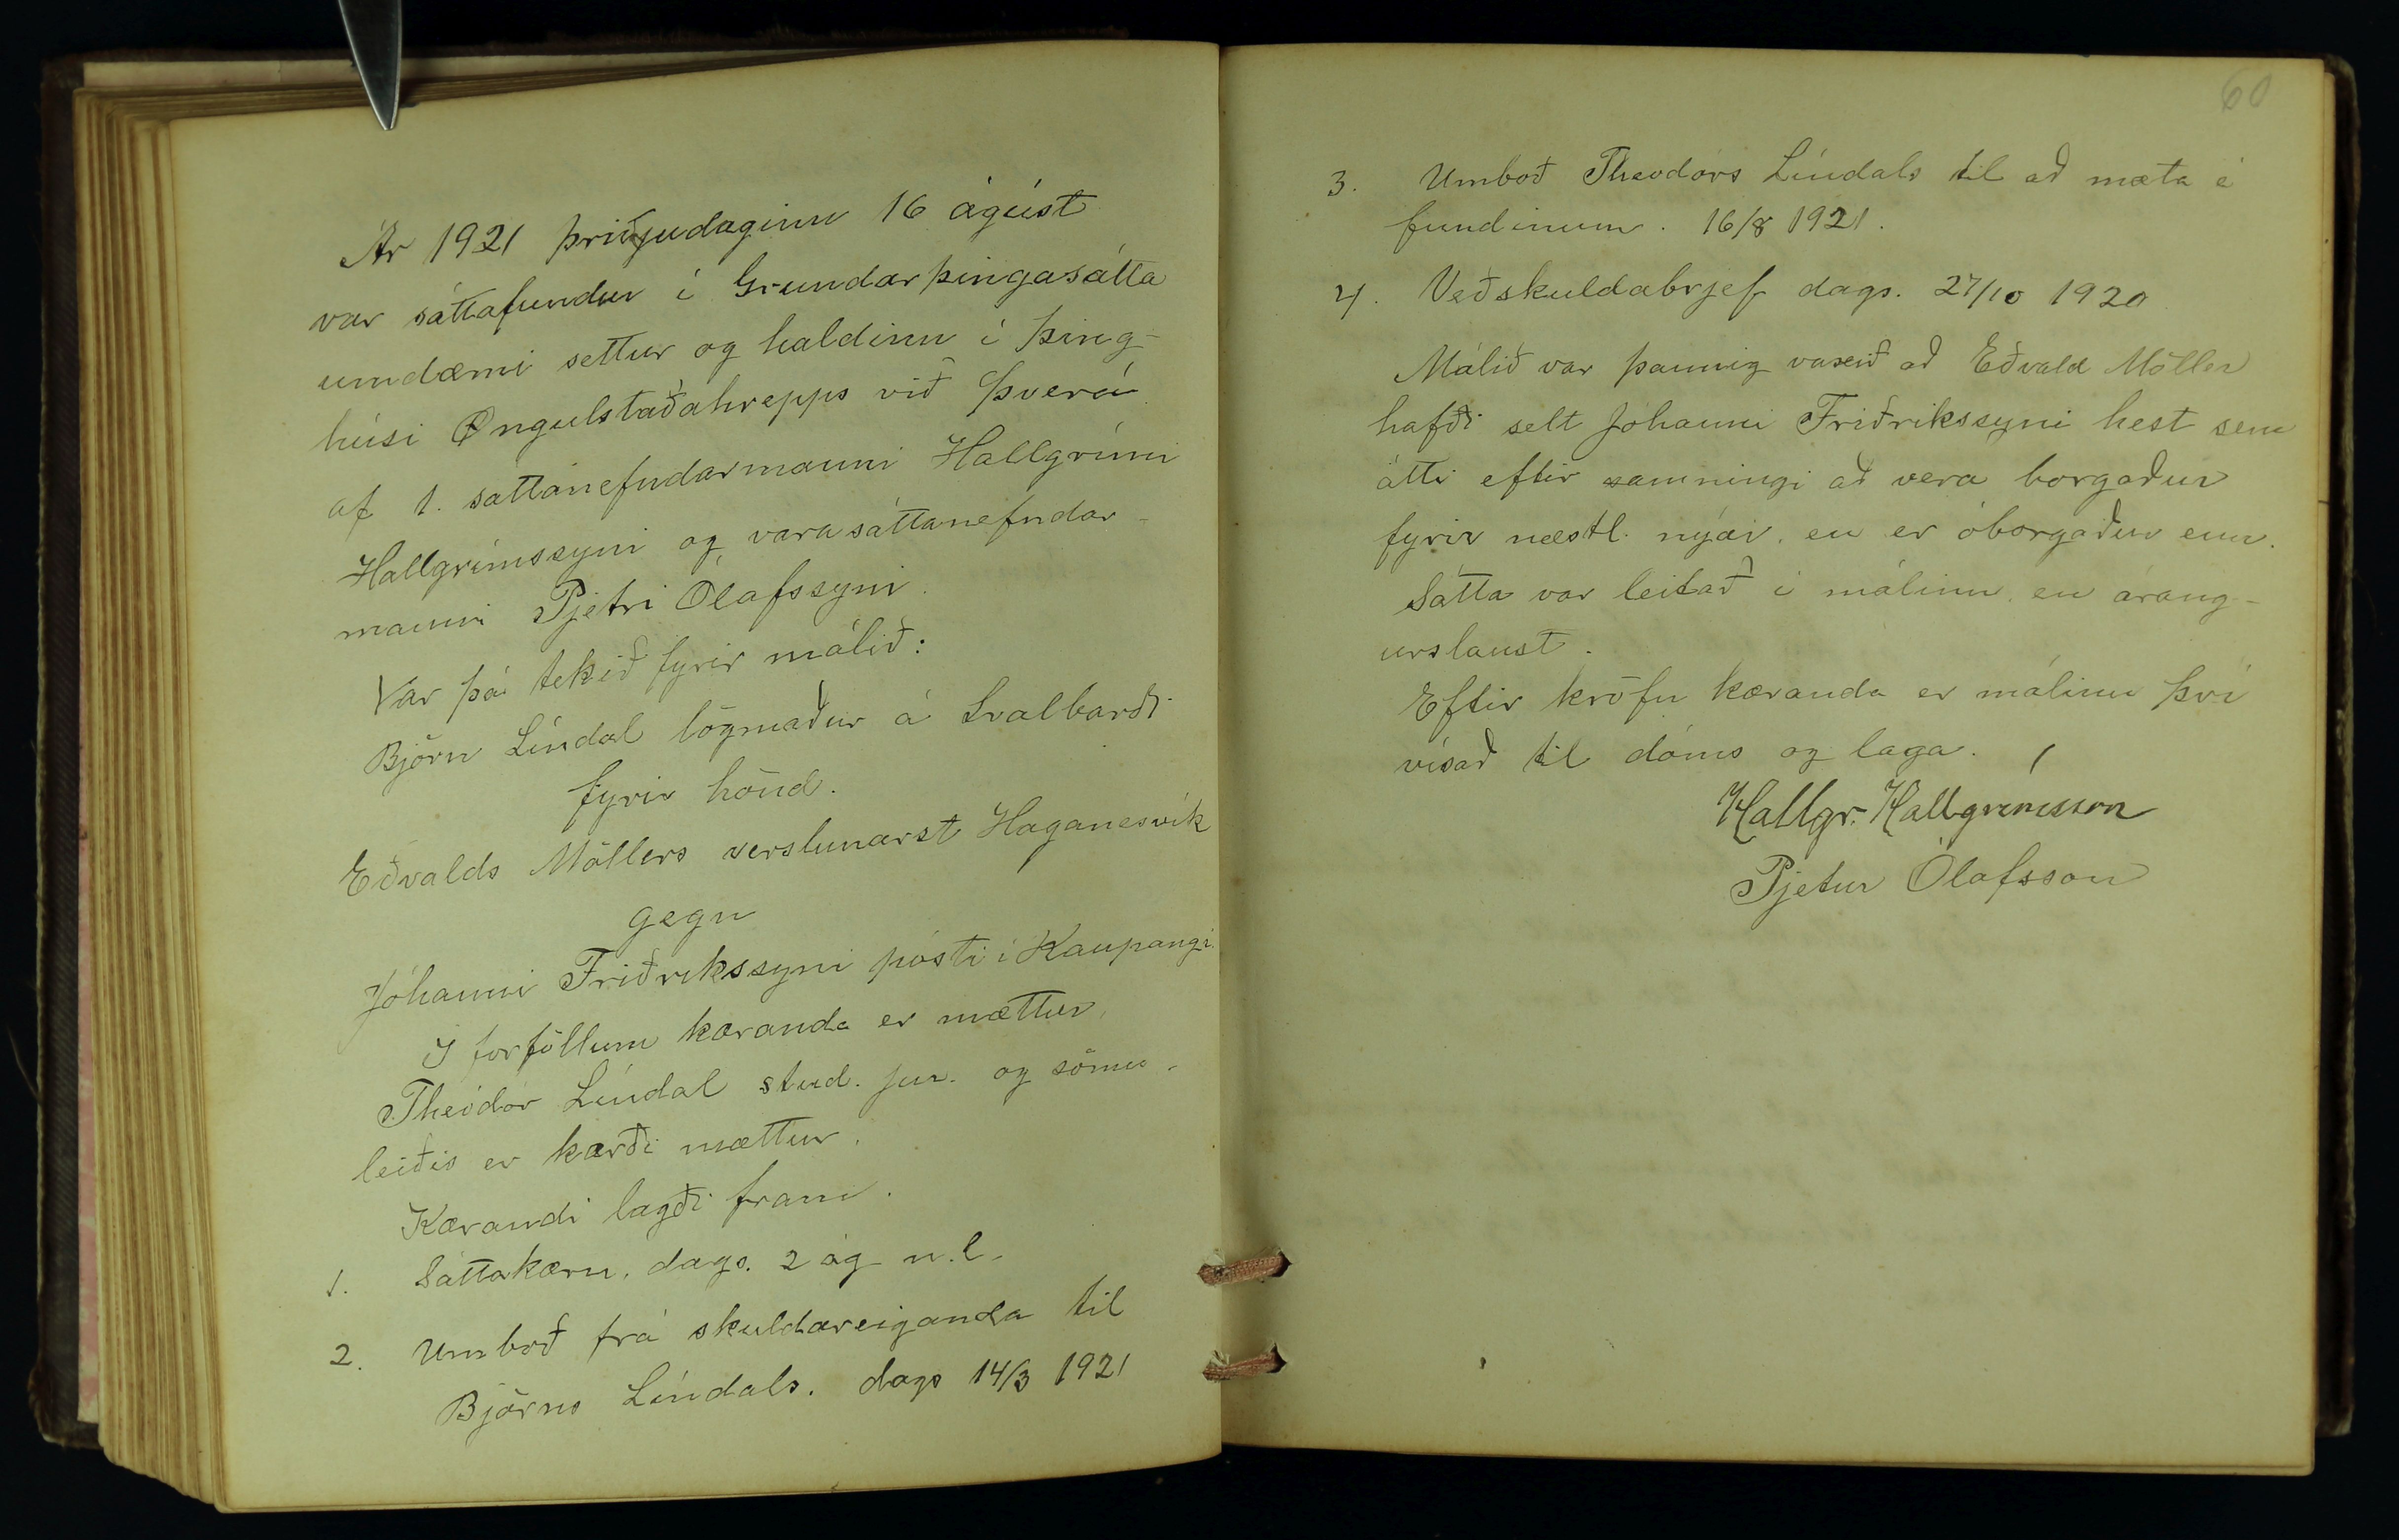 Ár 1921 þriðjudaginn 16 ágúst
var sáttafundur í Grundarþingasátta
umdæmi settur og haldinn í þing-
húsi Öngulstaðahrepps við Þverá
af 1. sáttanefndarmanni Hallgrími
Hallgrímssyni og varasáttanefndar-
manni Pjetri Ólafssyni.
Var þá tekið fyrir málið:
Björn Líndal lögmaður á Svalbarði
fyrir hönd.
Eðvalds Möllers verslunarst Haganesvík
gegn
Jóhanni Friðrikssyni pósti í Kaupangi.
Í forföllum kæranda er mættur,
Theódór Líndal stud. jur. og sömu-
leiðis er kærði mættur.
Kærandi lagði fram.
1. Sáttakæru, dags. 2 ág n.l.
2. Umboð frá skuldareiganda til
Björns Líndals. dags 14/3 1921
60
3. Umboð Theodórs Líndals til að mæta á
fundinum. 16/8 1921.
4. Veðskuldabrjef dags. 27/10 1920
Málið var þannig vaxið að Eðvald Möller
hafði selt Jóhanni Friðrikssyni hest sem
átti eftir samningi að vera borgaður
fyrir næstl. nýár, en er óborgaður enn.
Sátta var leitað í málinu, en árang-
urslaust.
Eftir kröfu kæranda er málinu því
vísað til dóms og laga.
Hallgr. Hallgrímsson
Pjetur Ólafsson